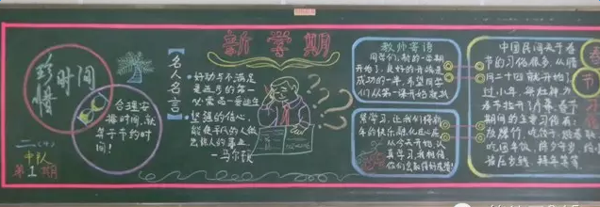 珍惜时间
合理安
排时间,就
等于节约时
间!
二(4)
中队
第1期
新学期
【名人名言】
·好动与不满足
是进步的第一
必需品—爱迪生
·坚强的信心,
能使平凡的人做
出惊人的事业
—马尔顿
教师寄语
同学们,新的一学期
开始了,良好的开端是
成功的一半,希望同学
们从第一课开始就
爱学习,让我们将新
年的快乐
从今天开始,认
真学习,我相信
你们会取得好成绩!
春节习俗
中国民间关于春
节的习俗很多,从腊
月二十四就开始了
过小年
春节拉开了序幕,春节
期间的主要习俗有:
放鞭炮、吃饺子、贴春联
吃团年饭、除夕守岁、给
压岁钱、拜年等等